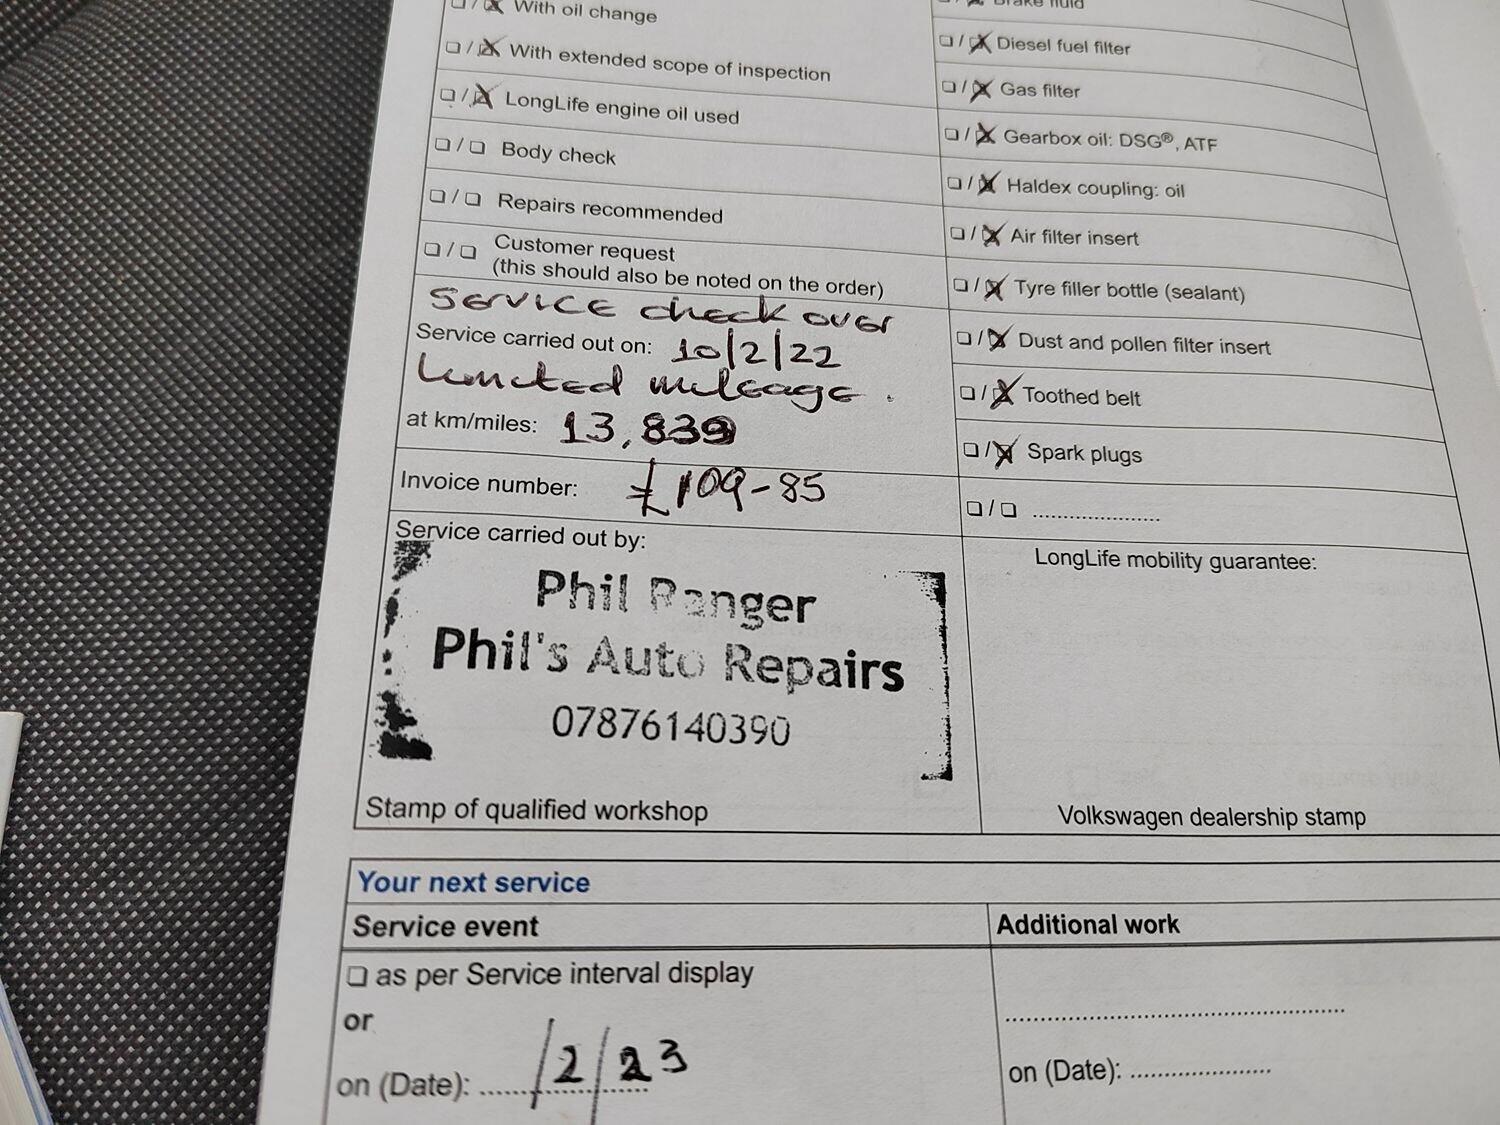 ☐/☒ With oil change
☐/☒ With extended scope of inspection
☐/☒ LongLife engine oil used
☐/☐ Body check
☐/☐ Repairs recommended
☐/☐ Customer request
(this should also be noted on the order)
Service check over
Service carried out on: 10/2/22
Limited mileage.
at km/miles: 13,839
Invoice number: £109-85
Service carried out by:
Phil Ranger
Phil's Auto Repairs
07876140390
Stamp of qualified workshop
☐/☒ Brake fluid
☐/☒ Diesel fuel filter
☐/☒ Gas filter
☐/☒ Gearbox oil: DSG®, ATF
☐/☒ Haldex coupling: oil
☐/☒ Air filter insert
☐/☒ Tyre filler bottle (sealant)
☐/☒ Dust and pollen filter insert
☐/☒ Toothed belt
☐/☒ Spark plugs
☐/☐ .....................
LongLife mobility guarantee:
Volkswagen dealership stamp
Your next service
Service event
☐ as per Service interval display
or
on (Date): /2/23
Additional work
on (Date): .....................